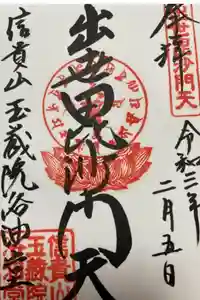 奉拝
令和三年二月五日
出世毘沙門天
信貴山玉蔵院浴油堂
信貴山
玉蔵院